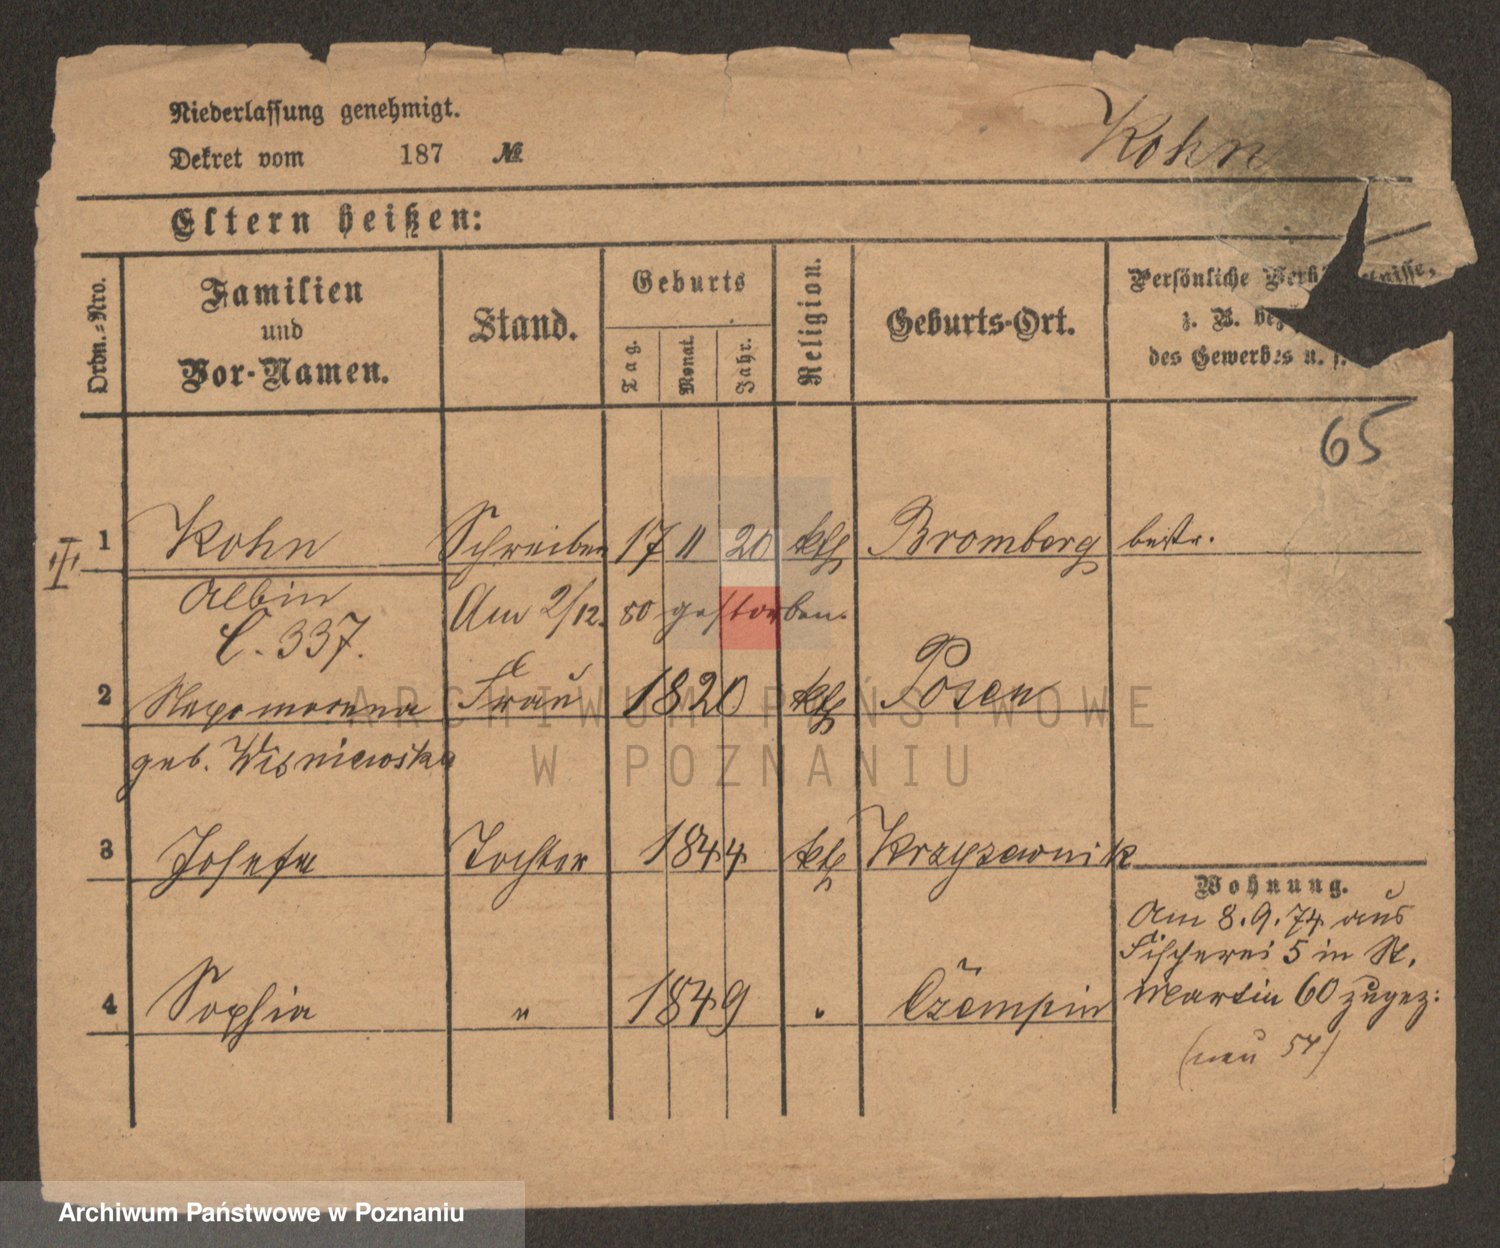 Niederlassung genehmigt.
Dekret vom 187 №
Kohn
Eltern heißen:
Ordn.-Nro.
Familien
und
Vor-Namen.
Stand.
Geburts
Tag.
Monat.
Jahr.
Religion.
Geburts-Ort.
Persönliche
z. B.
des Gewerbes u. s.
65
III
1 Kohn Schreiber 17 11 20 kth Bromberg bestr.
Albin Am 2/12. 80 gestorben.
C. 337.
2 Nepomocena Frau 1820 kth Posen
geb. Wisniewska
3 Josefa Tochter 1844 kth Krzyzownik
Wohnung.
Am 8.9.74 aus
Fischerei 5 in St.
Martin 60 zugez:
4 Sophia " 1849 " Czempin
(neu 54)
ARCHIWUM PAŃSTWOWE
W POZNANIU
Archiwum Państwowe w Poznaniu